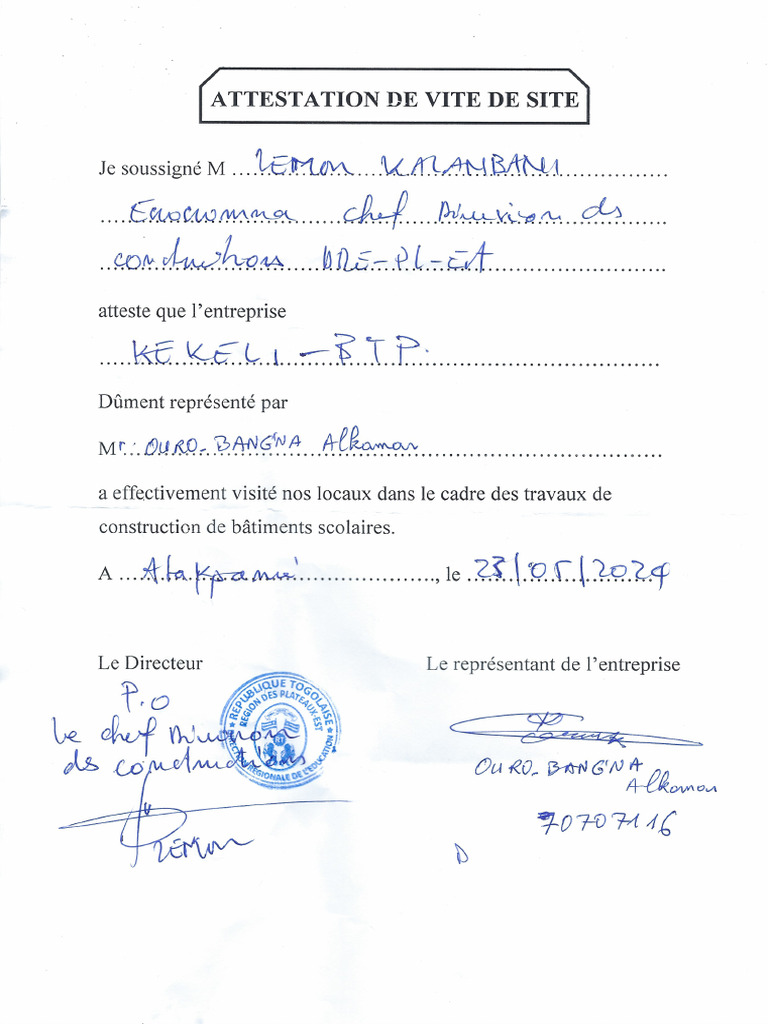 ATTESTATION DE VITE DE SITE
Je soussigné M ZEMON KALAMBANI
chef Division ds
constructions DRE-PL-Est
atteste que l'entreprise
KEKELI-BTP.
Dûment représenté par
Mr: OURO-BANG'NA Alkamar
a effectivement visité nos locaux dans le cadre des travaux de
construction de bâtiments scolaires.
A Atakpamé, le 23/05/2024
Le Directeur
Le représentant de l'entreprise
P.O
Le chef Division
ds constructions
ZEMON
REPUBLIQUE TOGOLAISE
REGION DES PLATEAUX-EST
DIRECTION REGIONALE DE L'EDUCATION
OURO-BANG'NA
Alkamar
70707116